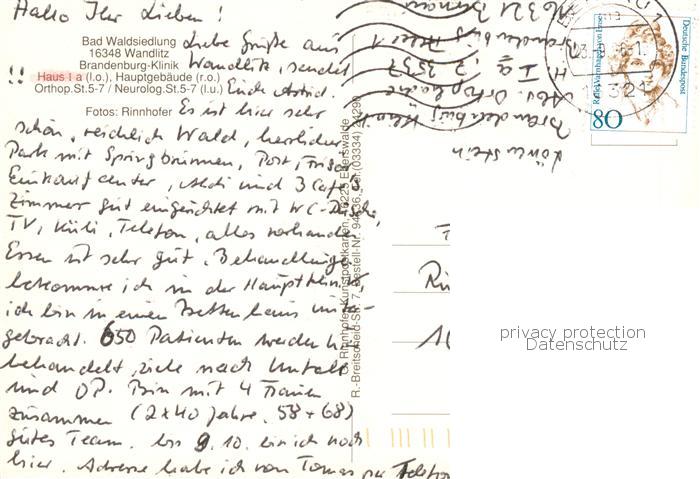 Hallo Ihr Lieben!
Bad Waldsiedlung
16348 Wandlitz
Brandenburg-Klinik
!! Haus I a (l.o.), Hauptgebäude (r.o.)
Orthop.St.5-7 / Neurolog.St.5-7 (l.u.)
Fotos: Rinnhofer
Liebe Grüße aus
Wandlitz, sendet
Euch Astrid.
Es ist hier sehr
schön, reichlich Wald, herrlicher
Park mit Springbrunnen, Post, Frisör
Einkaufcenter, Aldi und 3 Cafés
Zimmer gut eingerichtet mit WC-Dusche,
TV, Kühli, Telefon, alles vorhanden
Essen ist sehr gut. Behandlungen
bekomme ich in der Hauptklinik,
ich bin in einem Bettenhaus unter-
gebracht. 650 Patienten werden hier
behandelt, viele nach Unfall
und OP. Bin mit 4 Frauen
zusammen (2x40 Jahre, 58 + 68)
gutes Team. bis 9.10. bin ich noch
hier. Adresse habe ich von Tomas per Telefon
Löwenstein
Brandenburg Klinik
Abt. Orthopädie
H I a
Brandenburg Allee 1
16321 Bernau
Rinnhofer Kunstpostkarten, 16225 Eberswalde
R.-Breitscheid-Str. 7, Bestell-Nr.
Tel. (03334)
Rahel Varnhagen von Ense
Deutsche Bundespost
80
16321
privacy protection
Datenschutz